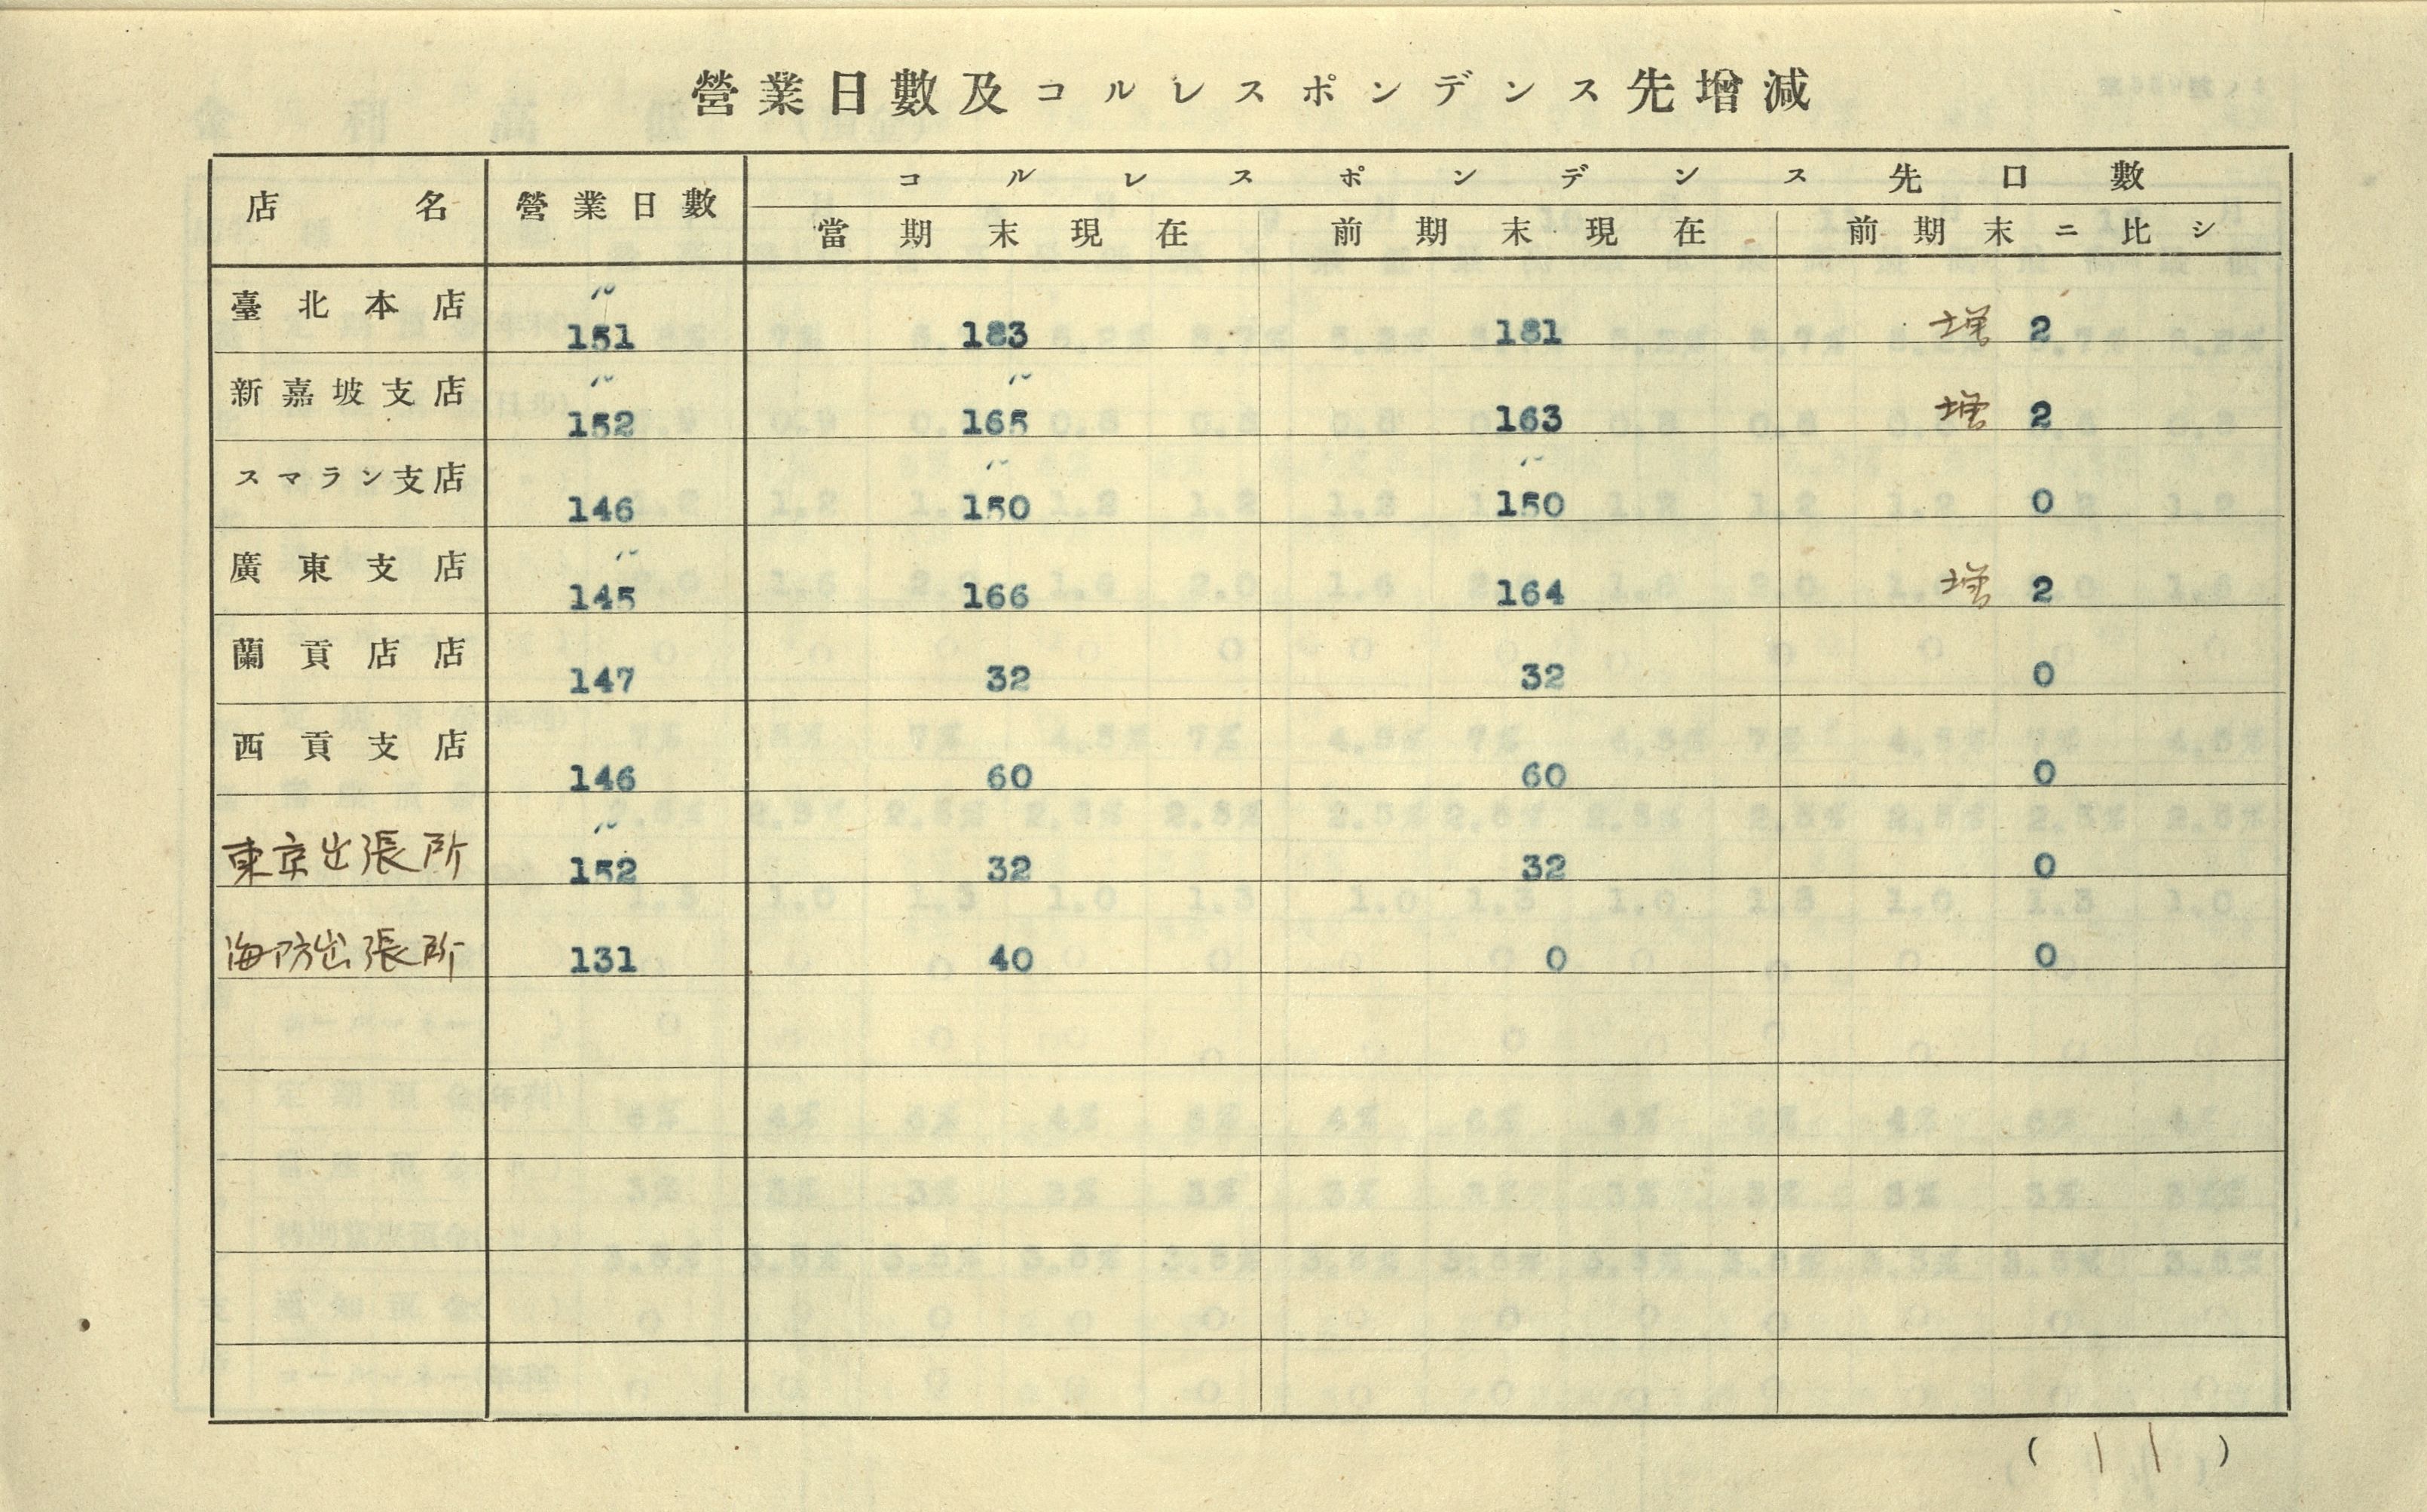 營業日數及コルレスポンデンス先增減
店名 營業日數 コルレスポンデンス先口數
當期末現在 前期末現在 前期末ニ比シ
臺北本店 151 183 181 増 2
新嘉坡支店 152 165 163 増 2
スマラン支店 146 150 150 0
廣東支店 145 166 164 増 2
蘭貢店店 147 32 32 0
西貢支店 146 60 60 0
東京出張所 152 32 32 0
海防出張所 131 40 0 0
(11)